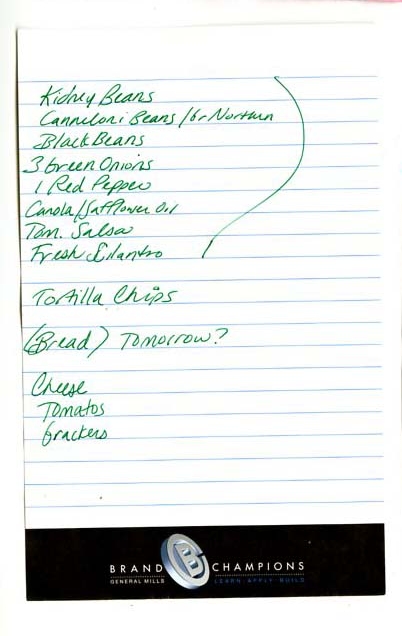 Kidney Beans
Canneloni Beans / Gr Northern
Black Beans
3 Green Onions
1 Red Pepper
Canola/Safflower Oil
Tom. Salsa
Fresh Cilantro
Tortilla Chips
(Bread) Tomorrow?
Cheese
Tomatos
Crackers
BRAND CHAMPIONS
GENERAL MILLS LEARN·APPLY·BUILD